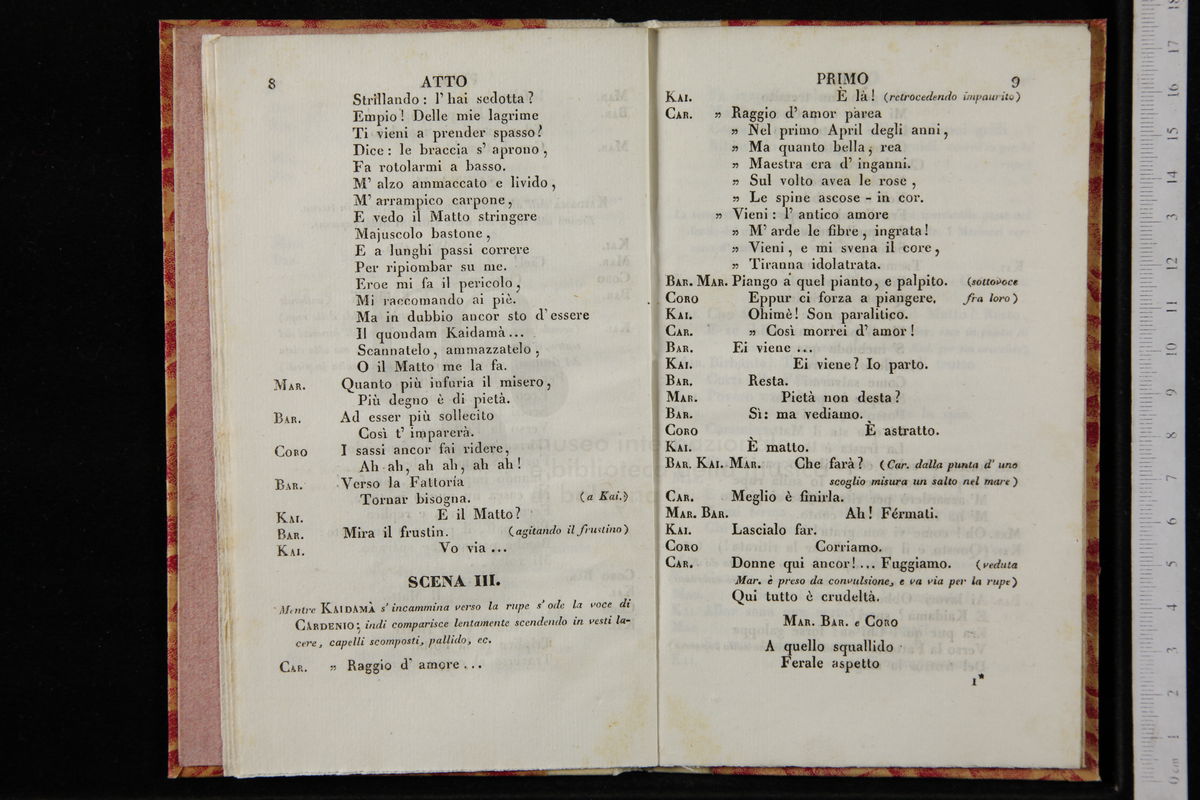 8 ATTO
Strillando : l' hai sedotta ?
Empio ! Delle mie lagrime
Ti vieni a prender spasso ?
Dice : le braccia s' aprono ,
Fa rotolarmi a basso.
M' alzo ammaccato e livido ,
M' arrampico carpone ,
E vedo il Matto stringere
Majuscolo bastone ,
E a lunghi passi correre
Per ripiombar su me.
Eroe mi fa il pericolo ,
Mi raccomando ai piè.
Ma in dubbio ancor sto d' essere
Il quondam Kaidamà ...
Scannatelo , ammazzatelo ,
O il Matto me la fa.
MAR. Quanto più infuria il misero ,
Più degno è di pietà.
BAR. Ad esser più sollecito
Così t' imparerà.
CORO I sassi ancor fai ridere ,
Ah ah, ah ah, ah ah !
BAR. Verso la Fattoría
Tornar bisogna. (a Kai.)
KAI. E il Matto ?
BAR. Mira il frustin. (agitando il frustino)
KAI. Vo via ...
SCENA III.
Mentre KAIDAMÀ s' incammina verso la rupe s' ode la voce di
CARDENIO; indi comparisce lentamente scendendo in vesti la-
cere, capelli scomposti, pallido, ec.
CAR. „ Raggio d' amore ...
PRIMO 9
KAI. È là ! (retrocedendo impaurito)
CAR. „ Raggio d' amor parea
„ Nel primo April degli anni ,
„ Ma quanto bella, rea
„ Maestra era d' inganni.
„ Sul volto avea le rose ,
„ Le spine ascose - in cor.
„ Vieni : l' antico amore
„ M' arde le fibre , ingrata !
„ Vieni , e mi svena il core ,
„ Tiranna idolatrata.
BAR. MAR. Piango a quel pianto, e palpito. (sottovoce
CORO Eppur ci forza a piangere. fra loro)
KAI. Ohimè ! Son paralitico.
CAR. „ Così morrei d' amor !
BAR. Ei viene ...
KAI. Ei viene ? Io parto.
BAR. Resta.
MAR. Pietà non desta ?
BAR. Sì: ma vediamo.
CORO È astratto.
KAI. È matto.
BAR. KAI. MAR. Che farà ? (Car. dalla punta d' uno
scoglio misura un salto nel mare)
CAR. Meglio è finirla.
MAR. BAR. Ah ! Férmati.
KAI. Lascialo far.
CORO Corriamo.
CAR. Donne qui ancor ! ... Fuggiamo. (veduta
Mar. è preso da convulsione, e va via per la rupe)
Qui tutto è crudeltà.
MAR. BAR. e CORO
A quello squallido
Ferale aspetto
1*